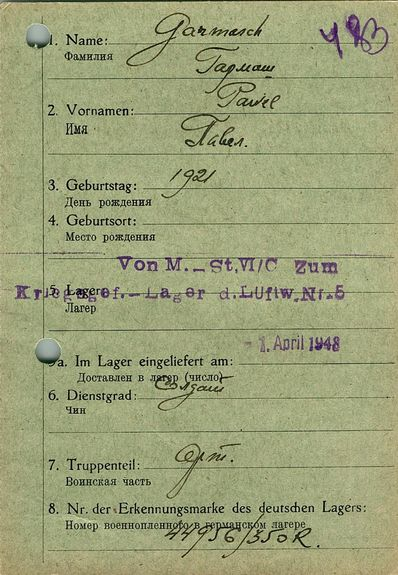 483
1. Name: Garmasch
Фамилия Гармаш
2. Vornamen: Pawel
Имя Павел.
3. Geburtstag: 1921
День рождения
4. Geburtsort:
Место рождения
Von M.-St.VI/C Zum
5. Lager:
Kriegsgef.-Lager d.Luftw.Nr.5
Лагер
1. April 1943
5a. Im Lager eingeliefert am:
Доставлен в лагер (число)
6. Dienstgrad: Солдат
Чин
7. Truppenteil: Арт.
Воинская часть
8. Nr. der Erkennungsmarke des deutschen Lagers:
Номер военнопленного в германском лагере
44956/350R.